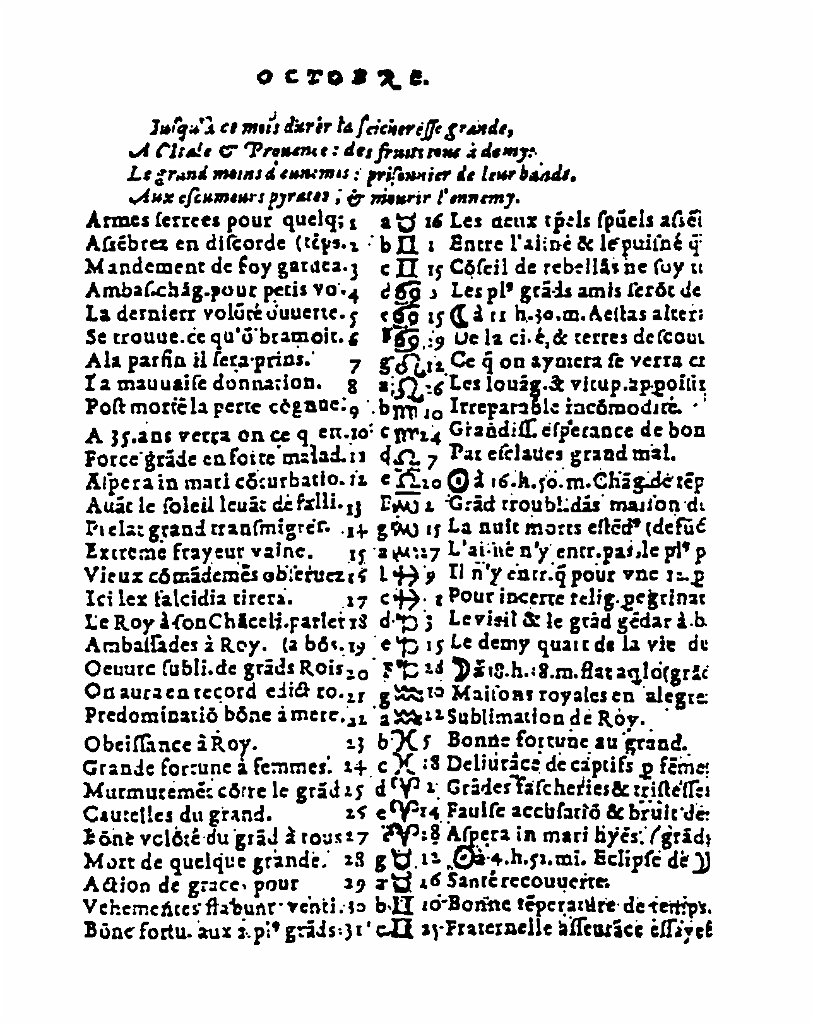 OCTOBRE.
Jusqu'à ce mois durer la seicheresse grande,
A l'Itale & Prouence: des fruits tous à demy:
Le grand moins d'ennemis: prisonnier de leur bande,
Aux escumeurs pyrates, & mourir l'ennemy.
Armes serrees pour quelq; 1 a ♉ 16 Les deux
Assēbrez en discorde (tēps. 2 b ♊ 1 Entre l'aisné & le puisné q̃
Mandement de foy gardea. 3 c ♊ 15 Cōseil de rebellās ne soy
Ambas. chāg. pour petis vo. 4 d ♋ 3 Les pl⁹ grāds amis serōt de
La derniere volōté ouuerte. 5 e ♋ 15 ☾ à 11 h. 30. m. Aestas alter
Se trouue. ce qu'ō bramoit. 6 ♋ 29 De la ci. é, & terres descou
A la parfin il sera prins. 7 g ♌ 12 Ce q̃ on aymera se verra
La mauuaise donnation. 8 a ♌ 26 Les louāg. & vitup. appositi
Post mortē la perte cōgnue. 9 b ♍ 10 Irreparable incōmodité.
A 35. ans verra on ce q en. 10 c ♍ 24 Grandiss. esperance de bon
Force grāde en foire malad. 11 d ♎ 7 Par esclaues grand mal.
Aspera in mari cōturbatio. 12 e ♎ 20 ☉ à 16. h. 50. m. Chāg. de tēp
Auāt le soleil leuāt defalli. 13 ♏ 2 Grād troubl. dās maison
Prelat grand transmigrer. 14 g ♏ 15 La nuit morts
Extreme frayeur vaine. 15 a ♏ 27 L'aisné n'y entr. pas, le pl⁹ p
Vieux cōmādemēs obseruez 16 b ♐ 9 Il n'y entr. q̃ pour vne
Ici lex falcidia tirera. 17 c ♐ 1 Pour incerte relig. pegrinat
Le Roy à son Chāceli. parler 18 d ♑ 3 Le visit & le grād gēdar à. b.
Ambassades à Roy. (a bōs. 19 e ♑ 15 Le demy quart de la vie
Oeuure subli. de grāds Rois 20 ♑ 28 ☽ à 18. h. 18. m. flat aqlo (grād
On aura en record edict ro. 21 g ♒ 10 Maisons royales en alegre
Predominatiō bōne à mere. 22 a ♒ 22 Sublimation de Roy.
Obeissance à Roy. 23 b ♓ 5 Bonne fortune au grand.
Grande fortune à femmes. 24 c ♓ 18 Deliurāce de captifs p fēmes
Murmuremēt cōtre le grād 25 d ♈ 1 Grādes fascheries & tristesses
Cautelles du grand. 26 e ♈ 14 Faulse accusatiō & bruit de
Bōne volōté du grād à tous 27 ♈ 28 Aspera in mari hyēs. (grād
Mort de quelque grande. 28 g ♉ 12 ☉ à 4. h. 51. mi. Eclipse de ☽
Action de grace, pour 29 a ♉ 16 Santé recouuerte.
Vehementes flabunt venti. 30 b ♊ 10 Bonne tēperature de temps.
Bōne fortu. aux 2. pl⁹ grāds. 31 c ♊ 25 Fraternelle asseurāce